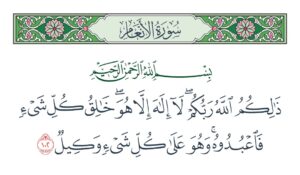 سُورَةُ الأَنْعَامِ
بِسْمِ اللَّهِ الرَّحْمَٰنِ الرَّحِيمِ
ذَٰلِكُمُ اللَّهُ رَبُّكُمْ ۖ لَا إِلَٰهَ إِلَّا هُوَ ۖ خَالِقُ كُلِّ شَيْءٍ
فَاعْبُدُوهُ ۚ وَهُوَ عَلَىٰ كُلِّ شَيْءٍ وَكِيلٌ ١٠٢